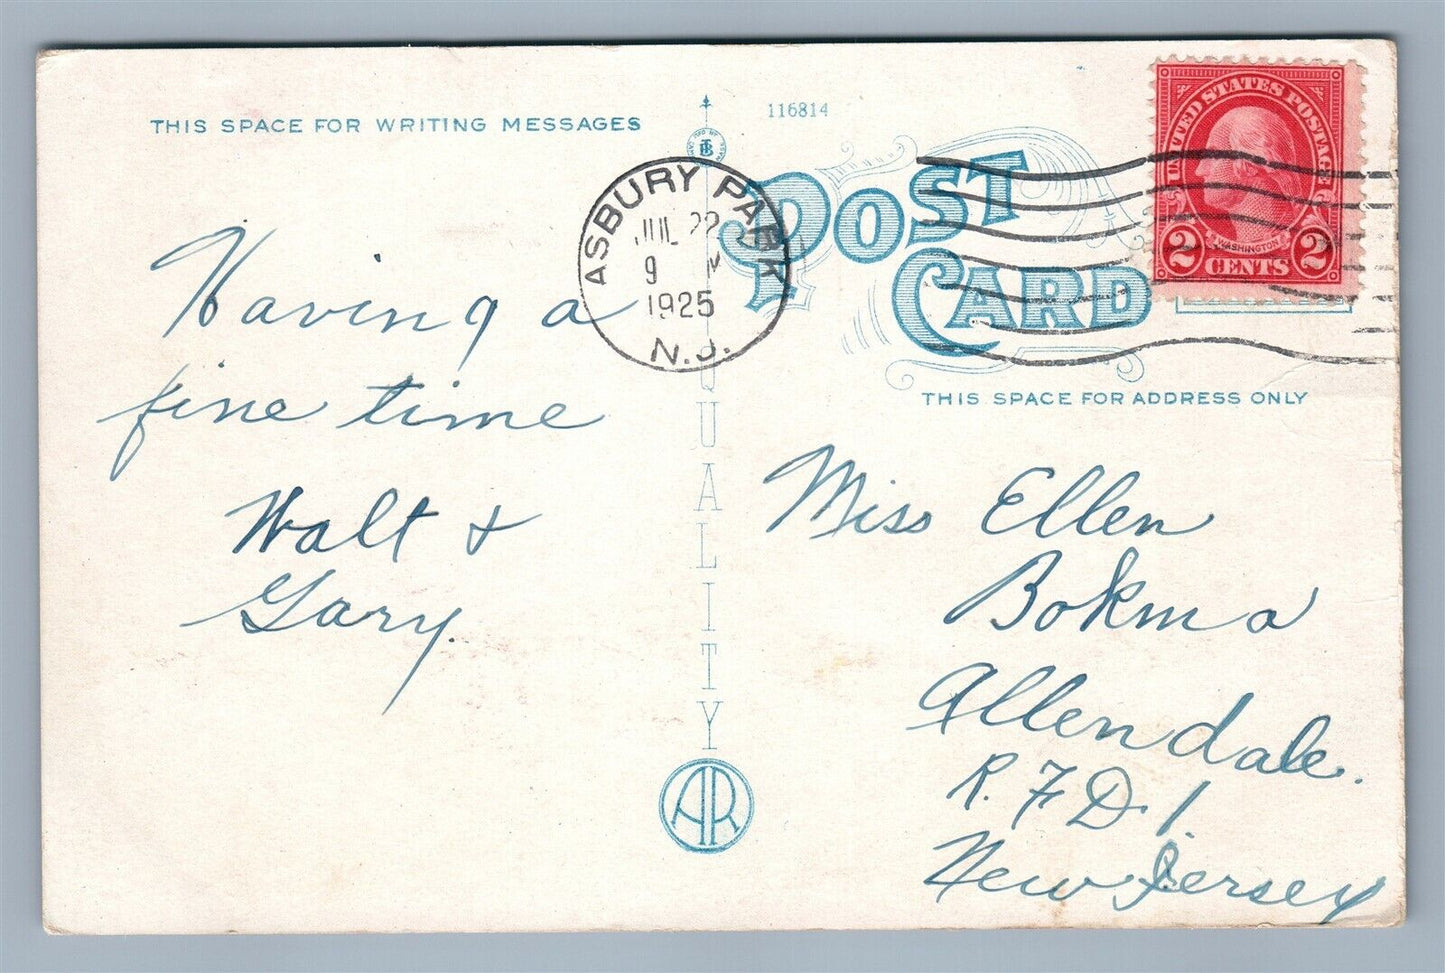 THIS SPACE FOR WRITING MESSAGES
116814
ASBURY PARK
JUL 22
9 M
1925
N.J.
POST
CARD
UNITED STATES POSTAGE
WASHINGTON
2 CENTS 2
THIS SPACE FOR ADDRESS ONLY
QUALITY
AR
Having a
fine time
Walt &
Gary.
Miss Ellen
Bokma
Allendale.
R. F D. 1.
New Jersey